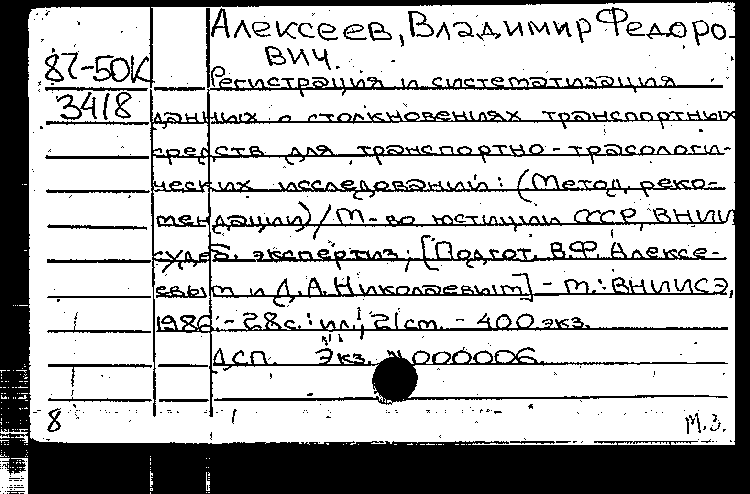 Алексеев, Владимир Федоро-
вич.
87-50К
Регистрация и систематизация
3418
данных о столкновениях транспортных
средств для транспортно-трасологи-
ческих исследований: (Метод. реко-
мендации) / М-во юстиции СССР, ВНИИ
судеб. экспертиз; [Подгот. В.Ф. Алексе-
евым и Д.А. Николаевым] - М.: ВНИИСЭ,
1986. - 28с.: ил.; 21см. - 400 экз.
ДСП. Экз. N000006.
8
М.З.